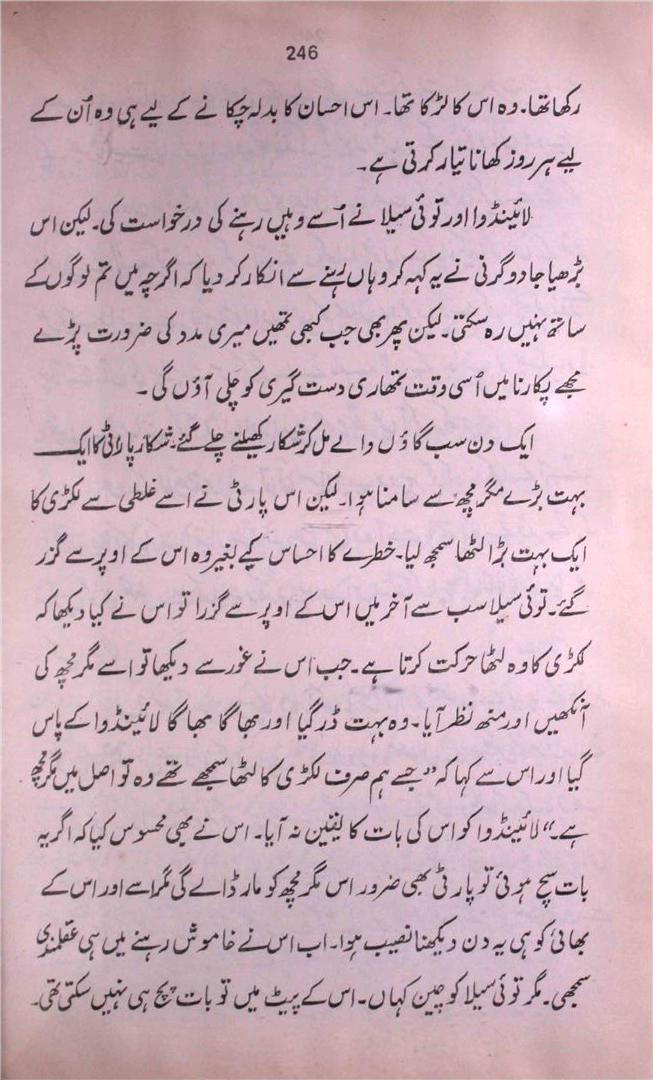 246
رکھا تھا۔ وہ اس کا لڑکا تھا۔ اس احسان کا بدلہ چکانے کے لیے ہی وہ اُن کے
لیے ہر روز کھانا تیار کرتی ہے۔
لائینڈوا اور توئی سیلا نے اُسے وہیں رہنے کی درخواست کی۔ لیکن اس
بڑھیا جادوگرنی نے یہ کہہ کر وہاں رہنے سے انکار کر دیا کہ اگرچہ میں تم لوگوں کے
ساتھ نہیں رہ سکتی۔ لیکن پھر بھی جب کبھی تمھیں میری مدد کی ضرورت پڑے
مجھے پکارنا میں اُسی وقت تمھاری دست گیری کو چلی آؤں گی ۔
ایک دن سب گاؤں والے مل کر شکار کھیلنے چلے گئے۔ شکار پارٹی کا ایک
بہت بڑے مگرمچھ سے سامنا ہوا۔ لیکن اس پارٹی نے اسے غلطی سے لکڑی کا
ایک بہت بڑا لٹھا سمجھ لیا۔ خطرے کا احساس کیے بغیر وہ اس کے اوپر سے گزر
گئے۔ توئی سیلا سب سے آخر میں اس کے اوپر سے گزرا تو اس نے کیا دیکھا کہ
لکڑی کا وہ لٹھا حرکت کرتا ہے۔ جب اس نے غور سے دیکھا تو اسے مگرمچھ کی
آنکھیں اور منھ نظر آیا۔ وہ بہت ڈر گیا اور بھاگا بھاگا لائینڈوا کے پاس
گیا اور اس سے کہا کہ ”جسے ہم صرف لکڑی کا لٹھا سمجھے تھے وہ تو اصل میں مگرمچھ
ہے۔“ لائینڈوا کو اس کی بات کا یقین نہ آیا۔ اس نے بھی محسوس کیا کہ اگر یہ
بات سچ ہوئی تو پارٹی بھی ضرور اس مگرمچھ کو مار ڈالے گی مگر اسے اور اس کے
بھائی کو ہی یہ دن دیکھنا نصیب ہوا۔ اب اس نے خاموش رہنے میں ہی عقلمندی
سمجھی۔ مگر توئی سیلا کو چین کہاں۔ اس کے پیٹ میں تو بات پچ ہی نہیں سکتی تھی۔